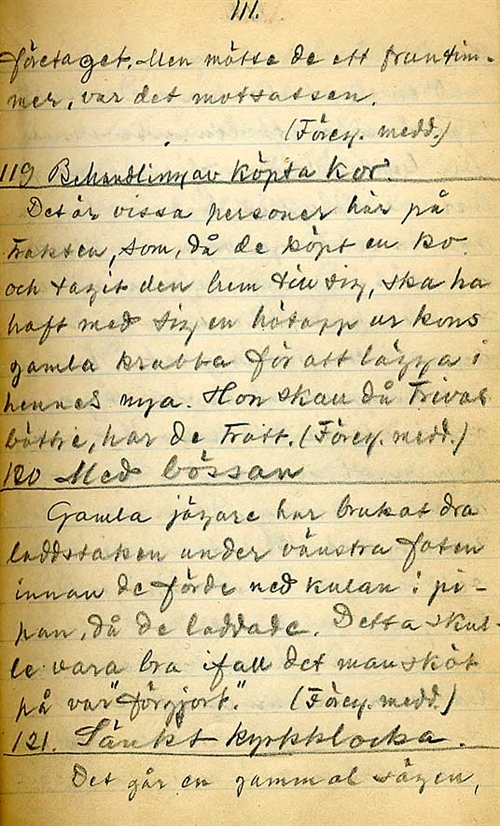 111.
företaget. Men mötte de ett fruntim-
mer, var det motsatsen.
(Förey. medd.)
119 Behandling av köpta kor.
Det är vissa personer här på
trakten, som, då de köpt en ko
och tagit den hem till sig, ska ha
haft med sig en hötapp ur kons
gamla krubba för att lägga i
hennes nya. Hon skall då trivas
bättre, har de trott. (Förey. medd.)
120 Med bössan
Gamla jägare har brukat dra
laddstaken under vänstra foten
innan de förde ned kulan i pi-
pan, då de laddade. Detta skul-
le vara bra ifall det man sköt
på var "förgjort". (Förey. medd.)
121. Sänkt kyrkklocka.
Det går en gammal sägen,